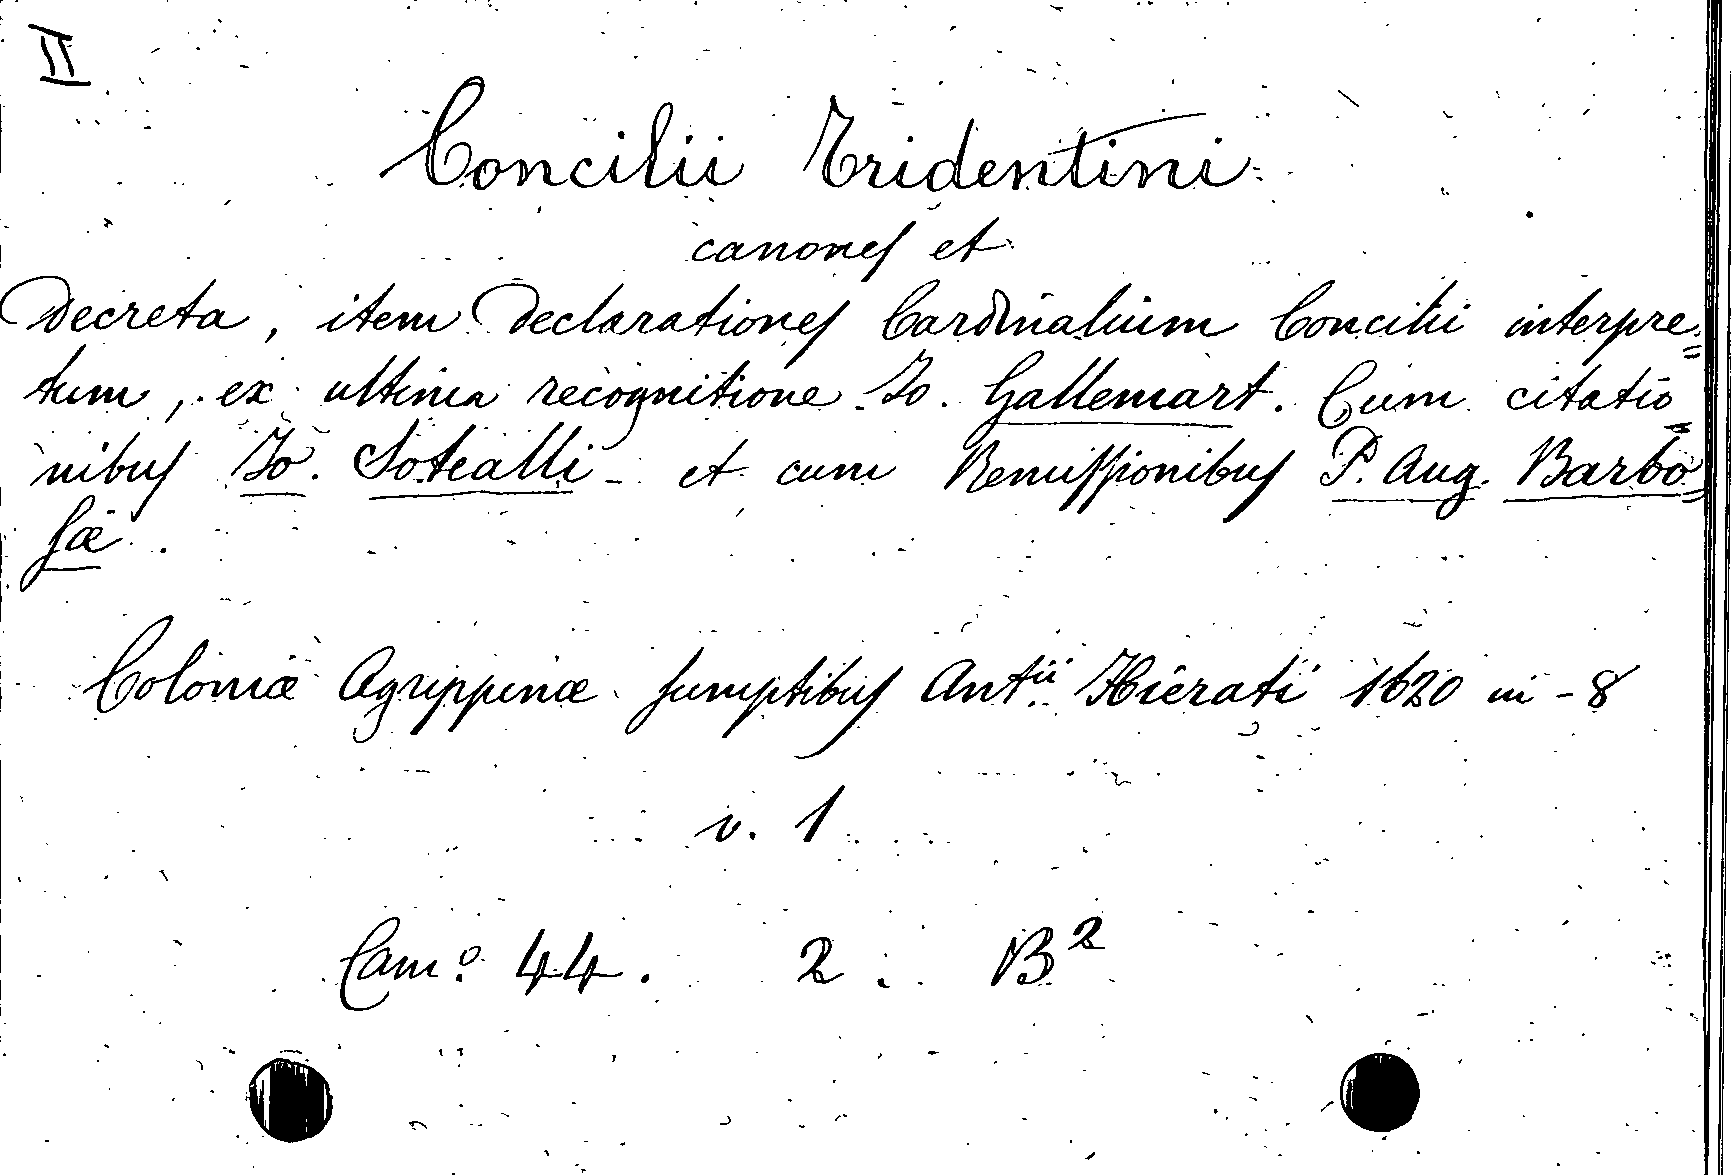 II
Concilii Tridentini
canones et
Decreta, item Declarationes Cardinalium Concilii interpre=
tum, ex ultima recognitione Jo. Gallemart. Cum citatio=
nibus Jo. Sotealli et cum Remissionibus P. Aug. Barbo=
sæ.
Coloniæ Agrippinæ sumptibus Antii Hierati 1620 in-8
v. 1
Cam.º 44. 2. B²